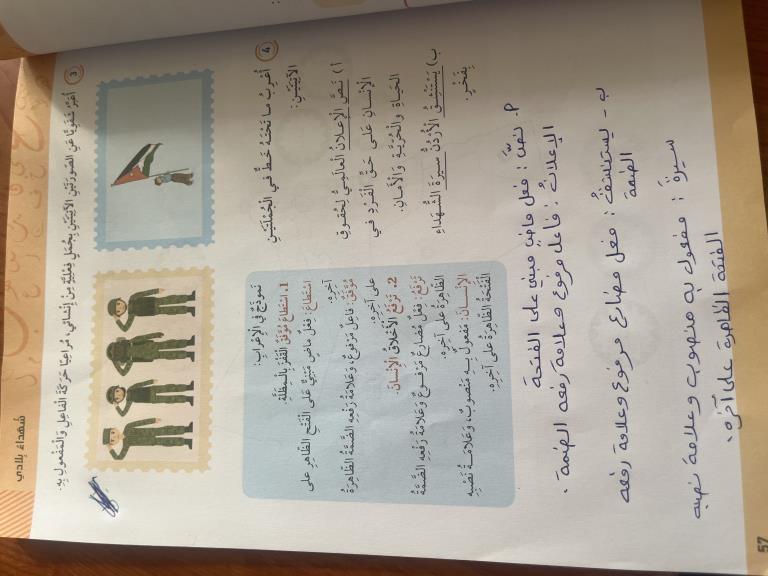 شُهَداءُ بِلادي
3 أُعَبِّرُ شَفَوِيًّا عَنِ الصّورَتَيْنِ الْآتِيَتَيْنِ بِجُمَلٍ فِعْلِيَّةٍ مِنْ إِنْشائي، مُراعِيًا حَرَكَةَ الْفاعِلِ وَالْمَفْعولِ بِهِ.
4 أُعْرِبُ ما تَحْتَهُ خَطٌّ في الْجُمْلَتَيْنِ
الْآتِيَتَيْنِ:
أ) نَصَّ الْإِعْلانُ الْعالَمِيُّ لِحُقوقِ
الْإِنْسانِ عَلى حَقِّ الْفَرْدِ في
الْحَياةِ وَالْحُرِّيَّةِ وَالْأَمانِ.
ب) يَسْتَنْشِقُ الْأُرْدُنُّ سيرَةَ الشُّهَداءِ
بِفَخْرٍ.
نَموذَجٌ في الْإِعْرابِ:
1. اسْتَطاعَ مُوَفَّقٌ الْقَفْزَ بِالْمِظَلَّةِ.
اسْتَطاعَ: فِعْلٌ ماضٍ مَبْنِيٌّ عَلى الْفَتْحِ الظّاهِرِ عَلى
آخِرِهِ.
مُوَفَّقٌ: فاعِلٌ مَرْفوعٌ، وَعَلامَةُ رَفْعِهِ الضَّمَّةُ الظّاهِرَةُ
عَلى آخِرِهِ.
2. تَرْفَعُ الْأَخْلاقُ الْإِنْسانَ.
تَرْفَعُ: فِعْلٌ مُضارِعٌ مَرْفوعٌ وَعَلامَةُ رَفْعِهِ الضَّمَّةُ
الظّاهِرَةُ عَلى آخِرِهِ.
الْإِنْسانَ: مَفْعولٌ بِهِ مَنْصوبٌ، وَعَلامَةُ نَصْبِهِ
الْفَتْحَةُ الظّاهِرَةُ عَلى آخِرِهِ.
أ. نصَّ : فعل ماضٍ مبني على الفتحة
الإعلانُ : فاعل مرفوع وعلامة رفعه الضمة.
ب - يستنشقُ : فعل مضارع مرفوع وعلامة رفعه
الضمة
سيرةَ : مفعول به منصوب وعلامة نصبه
الفتحة الظاهرة على آخره.
57